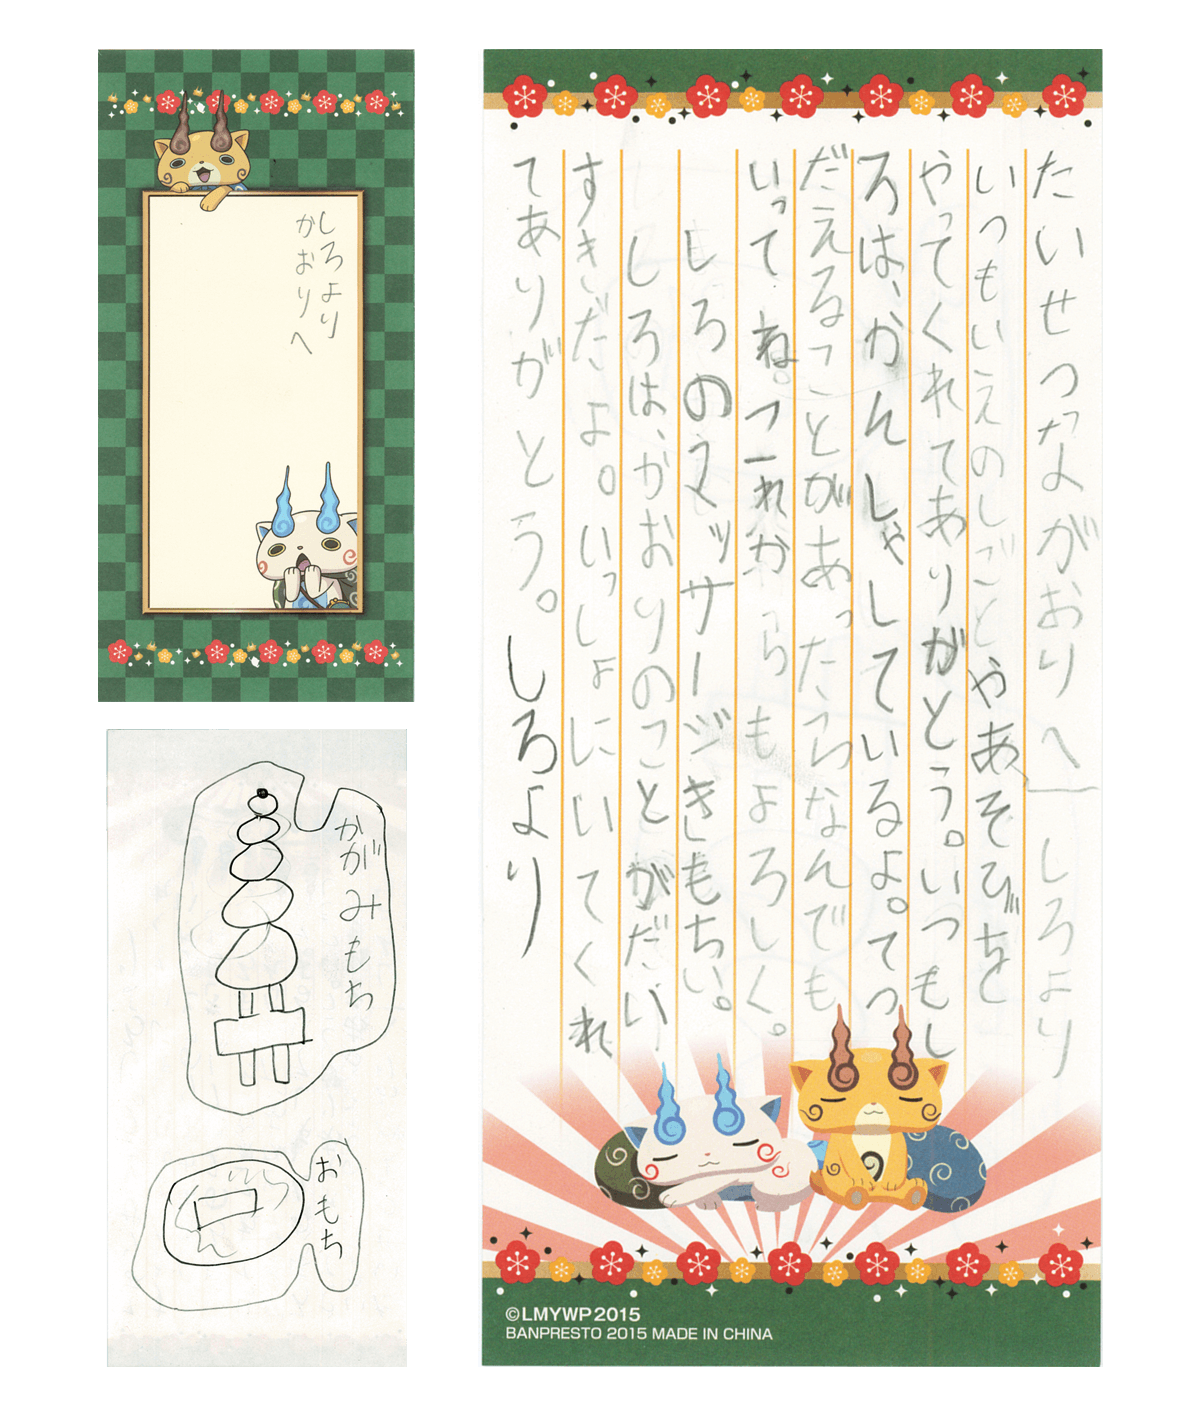 しろより
かおりへ
かがみもち
おもち
たいせつながおりへ しろより
いつもいえのしごとやあそびを
やってくれてありがとう。いつもし
ろは、かんしゃしているよ。てつ
だえることがあったらなんでも
いってね。これからもよろしく。
しろのマッサージきもちい。
しろは、かおりのことがだい
すきだよ。いっしょにいてくれ
てありがとう。しろより
©LMYWP2015
BANPRESTO 2015 MADE IN CHINA